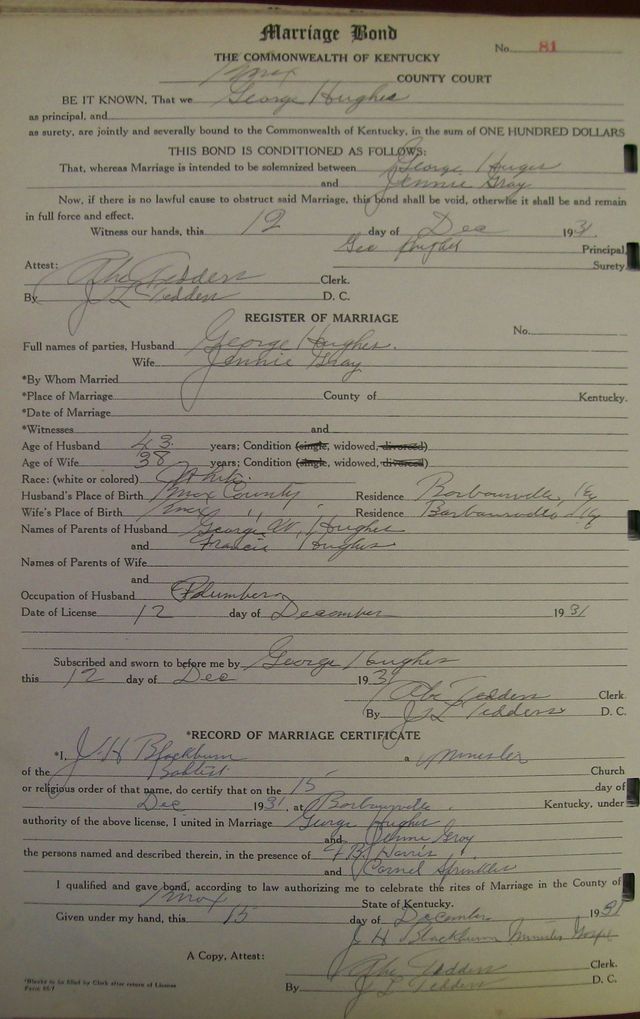 Marriage Bond
No. 81
THE COMMONWEALTH OF KENTUCKY
Knox COUNTY COURT
BE IT KNOWN, That we George Hughes
as principal, and
as surety, are jointly and severally bound to the Commonwealth of Kentucky, in the sum of ONE HUNDRED DOLLARS
THIS BOND IS CONDITIONED AS FOLLOWS:
That, whereas Marriage is intended to be solemnized between George Huges
and Jennie Gray
Now, if there is no lawful cause to obstruct said Marriage, this bond shall be void, otherwise it shall be and remain
in full force and effect.
Witness our hands, this 12 day of Dec 1931.
Geo Hughes Principal,
Surety.
Attest:
Abe Tedders Clerk.
By J L Tedders D. C.
REGISTER OF MARRIAGE
No.
Full names of parties, Husband George Hughes.
Wife Jennie Gray
*By Whom Married
*Place of Marriage County of Kentucky.
*Date of Marriage
*Witnesses and
Age of Husband 43 years; Condition (single, widowed, divorced)
Age of Wife 38 years; Condition (single, widowed, divorced)
Race: (white or colored) White
Husband's Place of Birth Knox County Residence Barbourville, Ky
Wife's Place of Birth Knox " " Residence Barbourville, Ky
Names of Parents of Husband George W. Hughes
and Francis Hughes
Names of Parents of Wife
and
Occupation of Husband Plumber
Date of License 12 day of December 1931
Subscribed and sworn to before me by George Hughes
this 12 day of Dec 1931
Abe Tedders Clerk
By J L Tedders D. C.
*RECORD OF MARRIAGE CERTIFICATE
*I, J. H Blackburn a Minister
of the Babtist Church
or religious order of that name, do certify that on the 15 day of
Dec 1931, at Barbourville, Kentucky, under
authority of the above license, I united in Marriage George Hughes
and Jennie Gray
the persons named and described therein, in the presence of B. Davis
and Carnel Sprinkles
I qualified and gave bond, according to law authorizing me to celebrate the rites of Marriage in the County of
Knox State of Kentucky.
Given under my hand, this 15 day of December 1931
J H Blackburn Minister Gospel
A Copy, Attest: Abe Tedders Clerk.
By J L Tedders D. C.
*Blanks to be filled by Clerk after return of License